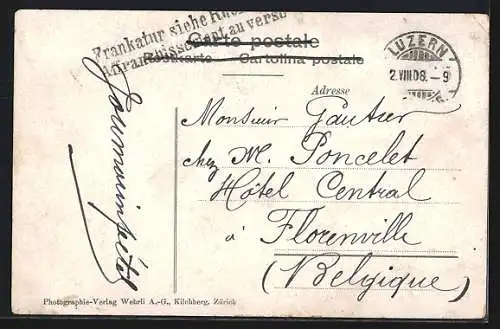 Frankatur siehe
Affranchissement au verso
Carte postale
Postkarte — Cartolina postale
LUZERN
2.VIII.08.-9
Adresse
Monsieur Gautier
chez M. Poncelet
Hôtel Central
à Florenville
(Belgique)
Photographie-Verlag Wehrli A.-G., Kilchberg, Zürich